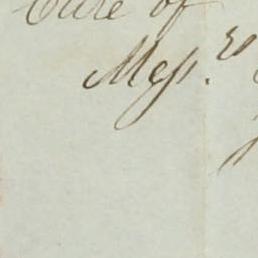 Care of
Messrs.